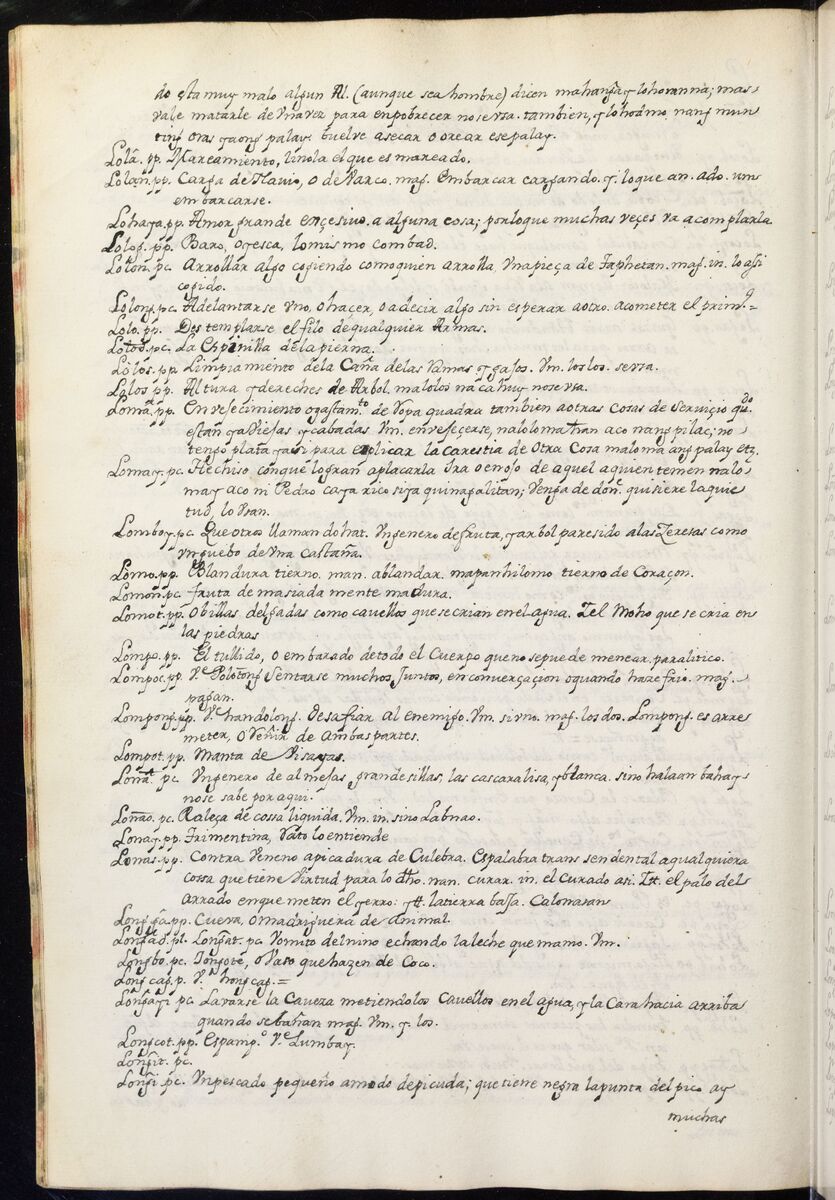 do esta muy malo algun Al. (aunque sea hombre) dicen mahanga y lohomnna; mas
vale matarle de Vna vez para enpobrecer no se vsa. tambien, y lohodmo nang mun
ting oras yaong palay. buelve asecar o orear ese palay.
Lola. pp. Mareamiento, linola el que es mareado.
Lolan. pp. Carga de Navio, o de Varco. mag. Embarcar cargando. y. lo que an. ado. um
embarcarse.
Lohaya. pp. Amor grande ençesivo. a alguna cosa; por lo que muchas veçes va a complarla
Lolog. pp. Baxo, o yesca, lo mismo combad.
Lolon. pc. Arrollar algo cogiendo como quien arrolla, Vna pieça de Taphetan. mag. in. lo asi
cogido.
Lolong. pc. Adelantarse vno, o hacer, o a decir algo sin esperar a otro. acometer el prim.º =
Lolo. pp. Destemplarse el filo de qualquier Armas.
Lolod. pc. La Espinilla de la pierna.
Lolos. pp. Limpiamento de la Caña de las Ramas y gajos. Vm. los los. se vsa.
Lolos pp. Altura y dereches de Arbol. malolos na cahuy no se vsa.
Loma. pp. Envejecimiento o gastam.to de Ropa quadra tambien a otras cosas de serviçio qdo
estan ya Viejas y cabadas Vm. envejeçerse, naloloma than aco nang pilac; no
tengo plata y asi para explicar la carestia de otra Cosa maloma ang palay etz.
Lomay. pc. Hechiso con que logran aplacarla Ira o enojo de aquel a quien temen nalo
may aco ni Pedro caya rico siya quinapalitan; Venga de donde quisiere la quie
tud, lo Vsan.
Lomboy. pc. Que otros llaman dohat. Vn genero de fruta, y arbol paresido a las Zeresas como
vn guebo de vna Castaña.
Lomo. pp. Blandura tierno. man. ablandar. mapanhilomo tierno de Coraçon.
Lomon. pc. fruta demasiadamente madura.
Lomot. pp. Obillas delgadas como cavellos que se crian en el agua. Iel Moho que se cria en
las piedras
Lompo. pp. El tullido, o embarado de todo el Cuerpo que no se puede menear. paralitico.
Lompoc. pp. Ve Polotong Sentarse muchos Juntos, en converçacion o quando haze frio. mag.
pagan.
Lompong. pp. Ve handolong. Desafiar al enemigo. Vm. si vno. mag. los dos. Lompong. es arre
meter, o Veñir de ambas partes.
Lompot. pp. Manta de Visayas.
Lona. pc. Vn genero de almejas grandesillas, las cascaras lisa, y blanca. sino halaan bahay
no se sabe por aqui.
Lonao. pc. Raleça de cossa liquida. Vm. in. sino Labnao.
Lonay. pp. Trimentina, Vato lo entiende
Lonas. pp. Contra Veneno a picadura de Culebra. Es palabra transsendental a qualquiera
cossa que tiene Virtud para lo dho. nan. curar. in. el Curado asi. Itt. el palo del
Arrado en que meten el yerro. ytt. la tierra baja. Calonasan
Longga. pp. Cueva, o madriguera de animal.
Longad. pc. Longat. pc. Vomito del nino echando la leche que mamo. Vm.
Longbo. pc. Tongote, o Vaso que hazen de Coco.
Longcag. p. Ve hongcag. =
Longayi pc. Lavarse la Caveza metiendo los Cavellos en el agua, y la Cara hacia arriba
quando se bañan mag. Vm. y los.
Longcot. pp. Espamp.º Ve Lumbay.
Longit. pc.
Longi. pc. Vn pescado pequeño a modo de picuda; que tiene negra la punta del pico ay
muchas